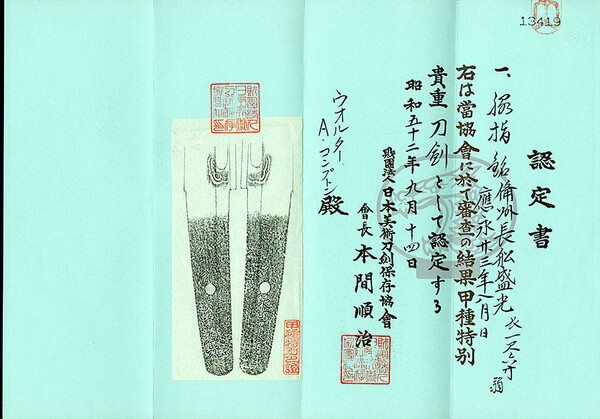 13419
認定書
一、脇指 銘備州長船盛光 長一尺六寸弱
應永廿三年八月日
右は當協會に於て審査の結果甲種特別
貴重刀剣として認定する
昭和五十二年九月十四日
財團法人日本美術刀剣保存協會
會長 本間順治
ウオルター・
A・コンプトン殿